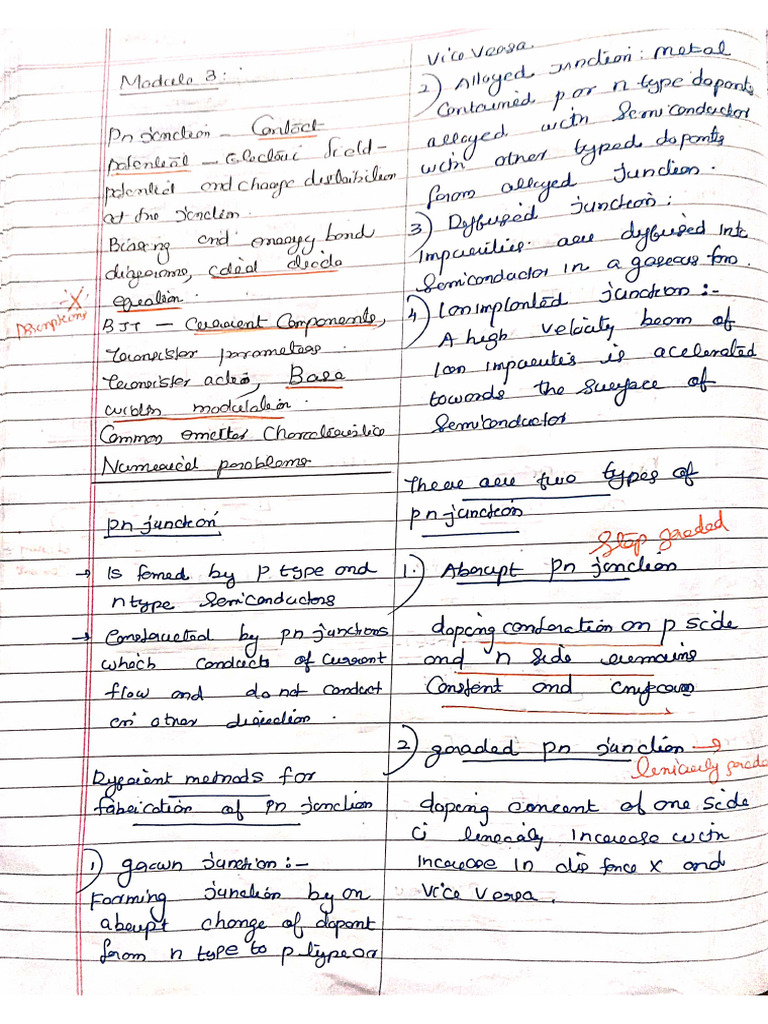 Module 3:
Pn junction - Contact
potential - Electric field -
potential and charge distribution
at the junction.
Biasing and energy band
diagrams, ideal diode
equation.
BJT - Current Components,
transistor parameters.
transistor action, Base
width modulation.
Common emitter Characteristics
Numerical problems
pn junction
→ Is formed by p type and
n type semiconductors
→ Constructed by pn junctions
which conducts of current
flow and do not conduct
on other direction.
Different methods for
fabrication of Pn junction
1) grown junction :-
Forming junction by an
abrupt change of dopant
from n type to p type or
Vice Versa.
2) Alloyed junction: metal
Contained p or n type dopants
alloyed with semiconductor
with other typed dopants
form alloyed junction.
3) Diffused junction:
impurities are diffused into
semiconductor in a gaseous
4) Ion implanted junction :-
A high velocity beam of
Ion impurities is acelerated
towards the surface of
semiconductor
There are two types of
pn junction
Step graded
1.) Abrupt Pn junction
doping on p side
and n side remains
Constent and
2) graded pn junction →
linearly graded
doping concent of one side
linearly increase with
increase in x and
vice versa.